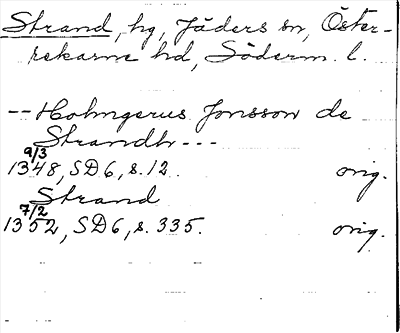 Strand, hg, Jäders sn, Öster-
rekarne hd, Söderm. l.
-- Holmgerus Jonsson de
Strandh ---
9/3
1348, SD6, s. 12. orig.
Strand
7/2
1352, SD6, s. 335. orig.